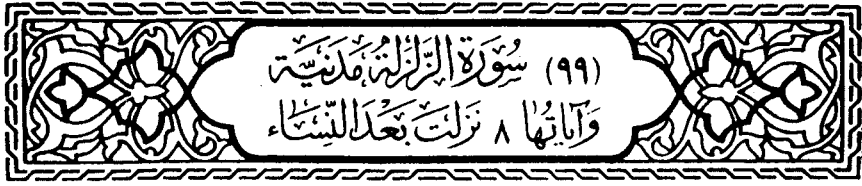 (٩٩) سُورَة الزَّلزَلَةُ مَدَنيَّة
وَآيَاتُها ٨ نَزَلتَ بَعْدَ النِّسَاء